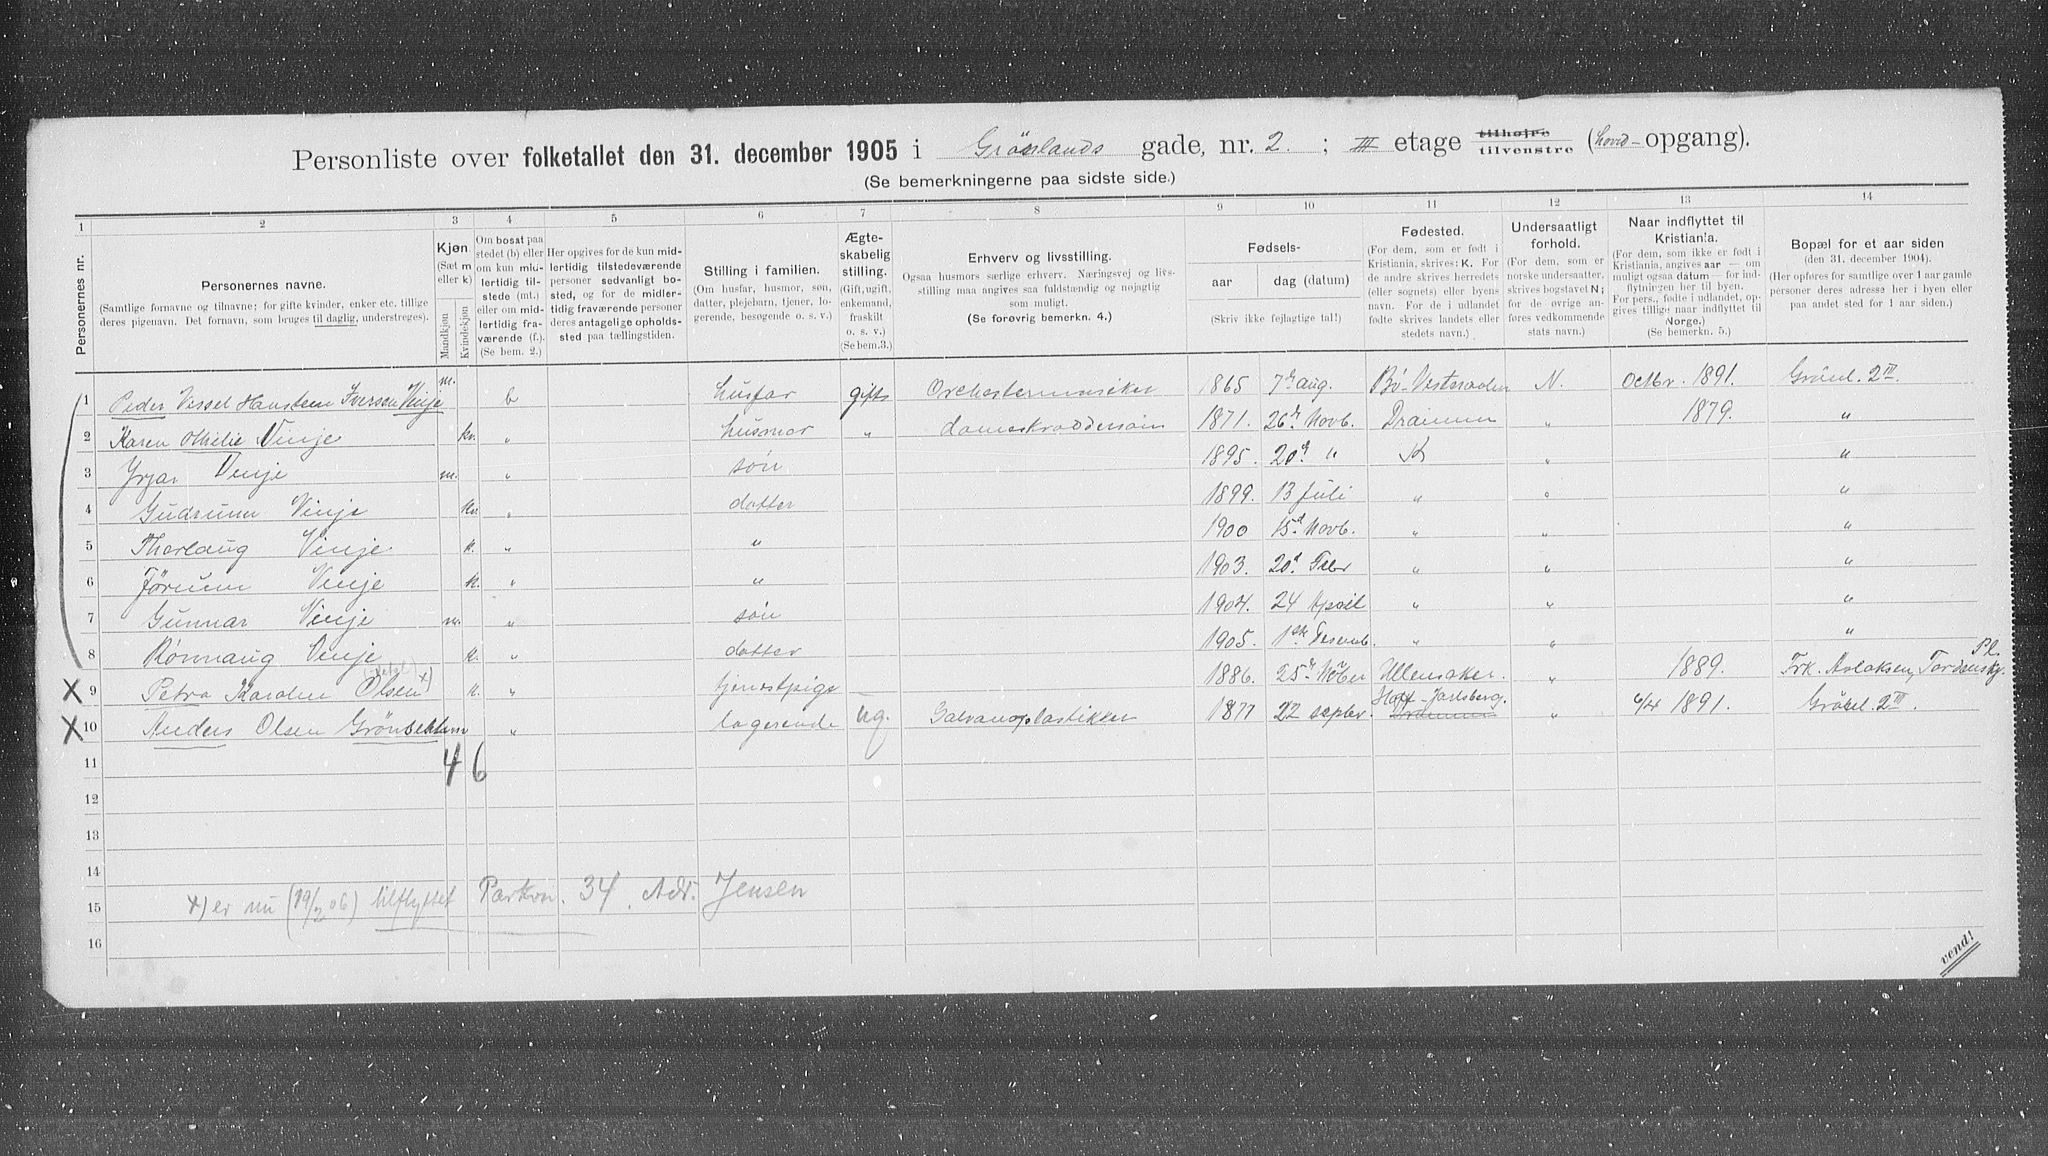 Personliste over folketallet den 31. december 1905 i Grönlands gade, nr. 2. ; III etage tilhøjre tilvenstre (hovd-opgang).
(Se bemerkningerne paa sidste side.)
1 2 3 4 5 6 7 8 9 10 11 12 13 14
Personernes nr.
Personernes navne.
(Samtlige fornavne og tilnavne; for gifte kvinder, enker etc. tillige
deres pigenavn. Det fornavn, som bruges til daglig, understreges).
Kjøn.
(Sæt m
eller k)
Mandkjøn
Kvindekjøn
Om bosat paa
stedet (b) eller
om kun midlertidig tilstede (mt.)
eller om midlertidig fraværende (f.).
(Se bem. 2.)
Her opgives for de kun midlertidig tilstedeværende
personer sedvanligt bosted, og for de midlertidig fraværende personer
deres antagelige opholdssted paa tællingstiden.
Stilling i familien.
(Om husfar, husmor, søn,
datter, plejebarn, tjener, logerende, besøgende o. s. v.)
Ægteskabelig
stilling.
(Gift, ugift,
enkemand,
fraskilt
o. s. v.)
(Se bem.3.)
Erhverv og livsstilling.
Ogsaa husmors særlige erhverv. Næringsvej og livsstilling maa angives saa fuldstændig og nøjagtig
som muligt.
(Se forøvrig bemerkn. 4.)
Fødsels-
aar dag (datum)
(Skriv ikke fejlagtige tal!)
Fødested.
(For dem, som er født i
Kristiania, skrives: K. For
de andre skrives herredets
(eller sognets) eller byens
navn. For de i udlandet
fødte skrives landets eller
stedets navn.)
Undersaatligt
forhold.
(For dem, som er
norske undersaatter,
skrives bogstavet N;
for de øvrige anføres vedkommende
stats navn.)
Naar indflyttet til
Kristiania.
(For dem, som ikke er født i
Kristiania, angives aar — om
muligt ogsaa datum — for indflytningen her til byen.
For pers., fødte i udlandet, opgives tillige naar indflyttet til
Norge.)
(Se bemerkn. 5.)
Bopæl for et aar siden
(den 31. december 1904).
(Her opføres for samtlige over 1 aar gamle
personer deres adresse her i byen eller
paa andet sted for 1 aar siden.)
1 Peder Vessel Hansteen Iversen Vinje m. b husfar gift Orchestermusiker 1865 7de aug. Bö N. octbr. 1891. Grönl. 2 III.
2 Karen Othilie Vinje kv. " husmor " 1871. 26de Novb. Drammen " 1879. "
3 Yrjar Vinje m. " søn 1895. 20de " K " "
4 Gudrunn Vinje kv. " datter 1899. 13 Juli " " "
5 Thorlaug Vinje k. " " 1900 15de Novb. " " "
6 Jörunn Vinje k. " " 1903. 20de Febr " " "
7 Gunnar Vinje m. " søn 1904. 24 April " " "
8 Rönnaug Vinje k. " datter 1905. 1ste Desemb. " " "
X 9 Petra Karoline Olsen x) k. " tjenestpige — 1886. 25de Ullensaker. " 1889. Frk. Aslaksen, Tordenskj. Pl.
X 10 Anders Olsen " logerende ug. Galvanoplastikker 1877 22 septbr. Hoff Jarlsberg. Drammen " 1891. Grönl. 2 III.
11
4 6
12
13
14
x) er nu (19/2 06) tilflyttet Parkvn. 34. Adr. Jensen
15
16
vend!